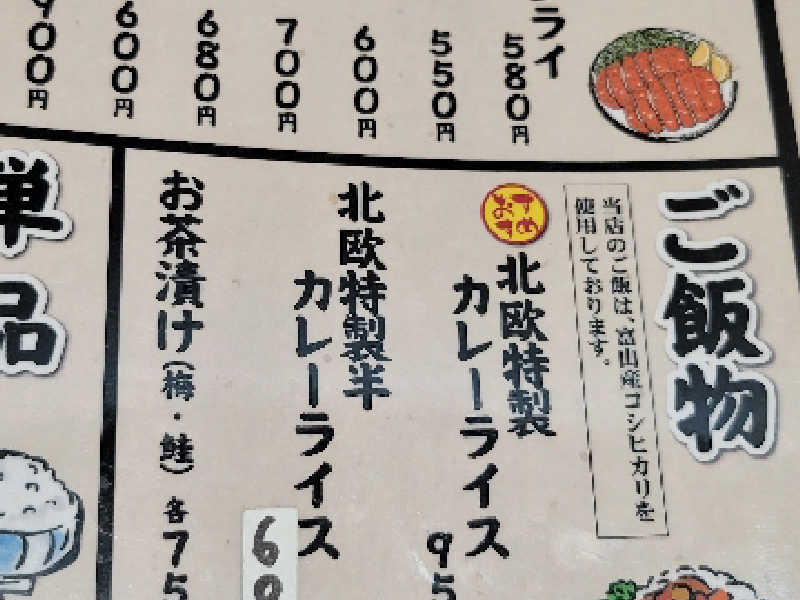 ライ
580円
550円
600円
700円
680円
600円
900円
ご飯物
当店のご飯は、富山産コシヒカリを
使用しております。
おすすめ
北欧特製
カレーライス
95
北欧特製半
カレーライス
60
お茶漬け(梅・鮭) 各75
単品